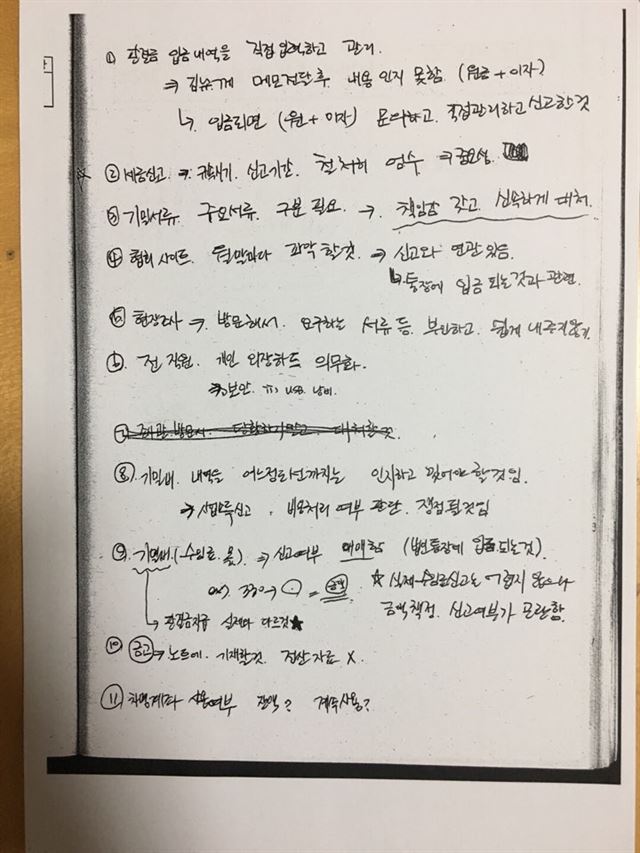 ① 판결금 입금내역을 직접 입력하고 관리.
⇒ 메모전달후 내용 인지 못함 (원금+이자)
↳ 입금되면 (원+이자) 문여하고. 직접관리하고 신고할것
② 세금신고 ⇒ 신고기간. 철저히 엄수 ⇒ 중요성.
③ 기밀서류. 주요서류. 구분 필요. → 책임감 갖고 신속하게 대처.
④ 협회 사이트. 월말마다 파악 할것. ⇒ 신고와 연관 있음.
↳ 통장에 입금 되는것과 관련.
⑤ 현장조사 ⇒ 방문해서. 요구하는 서류 등. 부인하고. 쉽게 내주지않기
⑥ 전 직원. 개인 외장하드 의무화.
⇒ 보안. USB 낭비.
⑦ 방문시. 당황하지말고. 대처할것.
⑧ 기밀비 내역을 어느정도선까지는 인지하고 있어야 할것임.
⇒ 신고. 비용처리 여부 판단. 쟁점될것임
⑨ 기밀비(수임료. 等) ⇒ 신고여부 애매함 (변통장에 입금되는것).
ex) 330 → = 금액 ☆ 실제 수임료신고는 어렵지 않으나
금액책정. 신고여부가 곤란함.
→ 판결금지급 실제와 다른것★
⑩ 금고 ⇒ 노트에. 기재할것. 전산자료 X.
⑪ 차명계좌 사용여부 잔액? 계속사용?